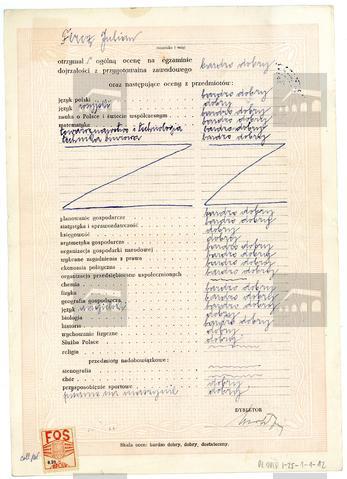 Julian
nazwisko i imię
otrzymał ogólną ocenę na egzaminie
dojrzałości z przygotowania zawodowego bardzo dobry
oraz następujące oceny z przedmiotów:
język polski bardzo dobry
język rosyjski dobry
nauka o Polsce i świecie współczesnym bardzo dobry
matematyka bardzo dobry
Towaroznawstwo i technologia bardzo dobry
technika biurowa bardzo dobry
planowanie gospodarcze bardzo dobry
statystyka i sprawozdawczość bardzo dobry
księgowość dobry
arytmetyka gospodarcza bardzo dobry
organizacja gospodarki narodowej bardzo dobry
wybrane zagadnienia z prawa bardzo dobry
ekonomia polityczna bardzo dobry
organizacja przedsiębiorstw uspołecznionych
chemia bardzo dobry
fizyka bardzo dobry
geografia gospodarcza dobry
język dobry
biologia bardzo dobry
historia bardzo dobry
wychowanie fizyczne dobry
Służba Polsce dobry
religia
przedmioty nadobowiązkowe:
stenografia
chór dobry
przysposobienie sportowe dobry
pisanie na maszynie dobry
DYREKTOR
Skala ocen: bardzo dobry, dobry, dostateczny.
FOS